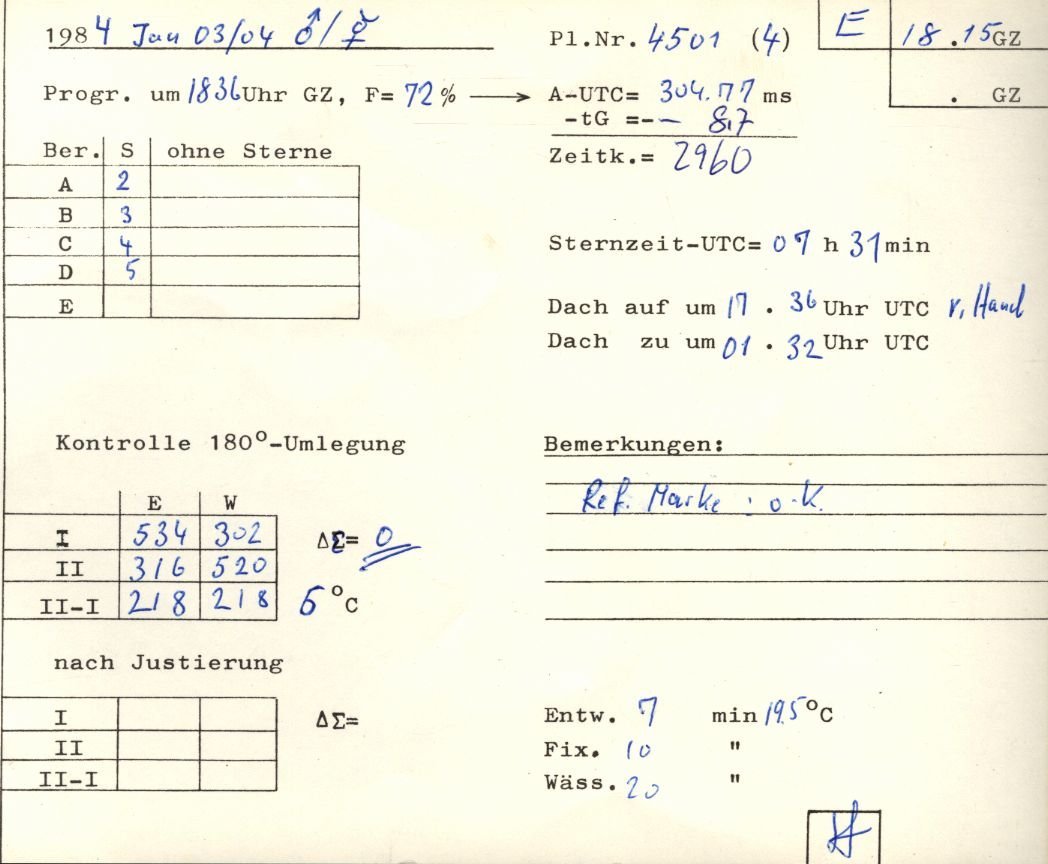 1984 Jan 03/04 ♂/☿
Pl.Nr. 4501 (4)
E 18.15GZ
. GZ
Progr. um 1836Uhr GZ, F= 72% → A-UTC= 304.77 ms
-tG =-- 8,7
Zeitk.= 2960
Ber. S ohne Sterne
A 2
B 3
C 4
D 5
E
Sternzeit-UTC= 07 h 31min
Dach auf um 17 . 36 Uhr UTC v. Hand
Dach zu um 01 . 32 Uhr UTC
Kontrolle 180°-Umlegung
E W
I 534 302
II 316 520
II-I 218 218
ΔΣ= 0
6 °C
Bemerkungen:
Ref. Marke : o.K.
nach Justierung
I
II
II-I
ΔΣ=
Entw. 7 min 19.5 °C
Fix. 10 "
Wäss. 20 "